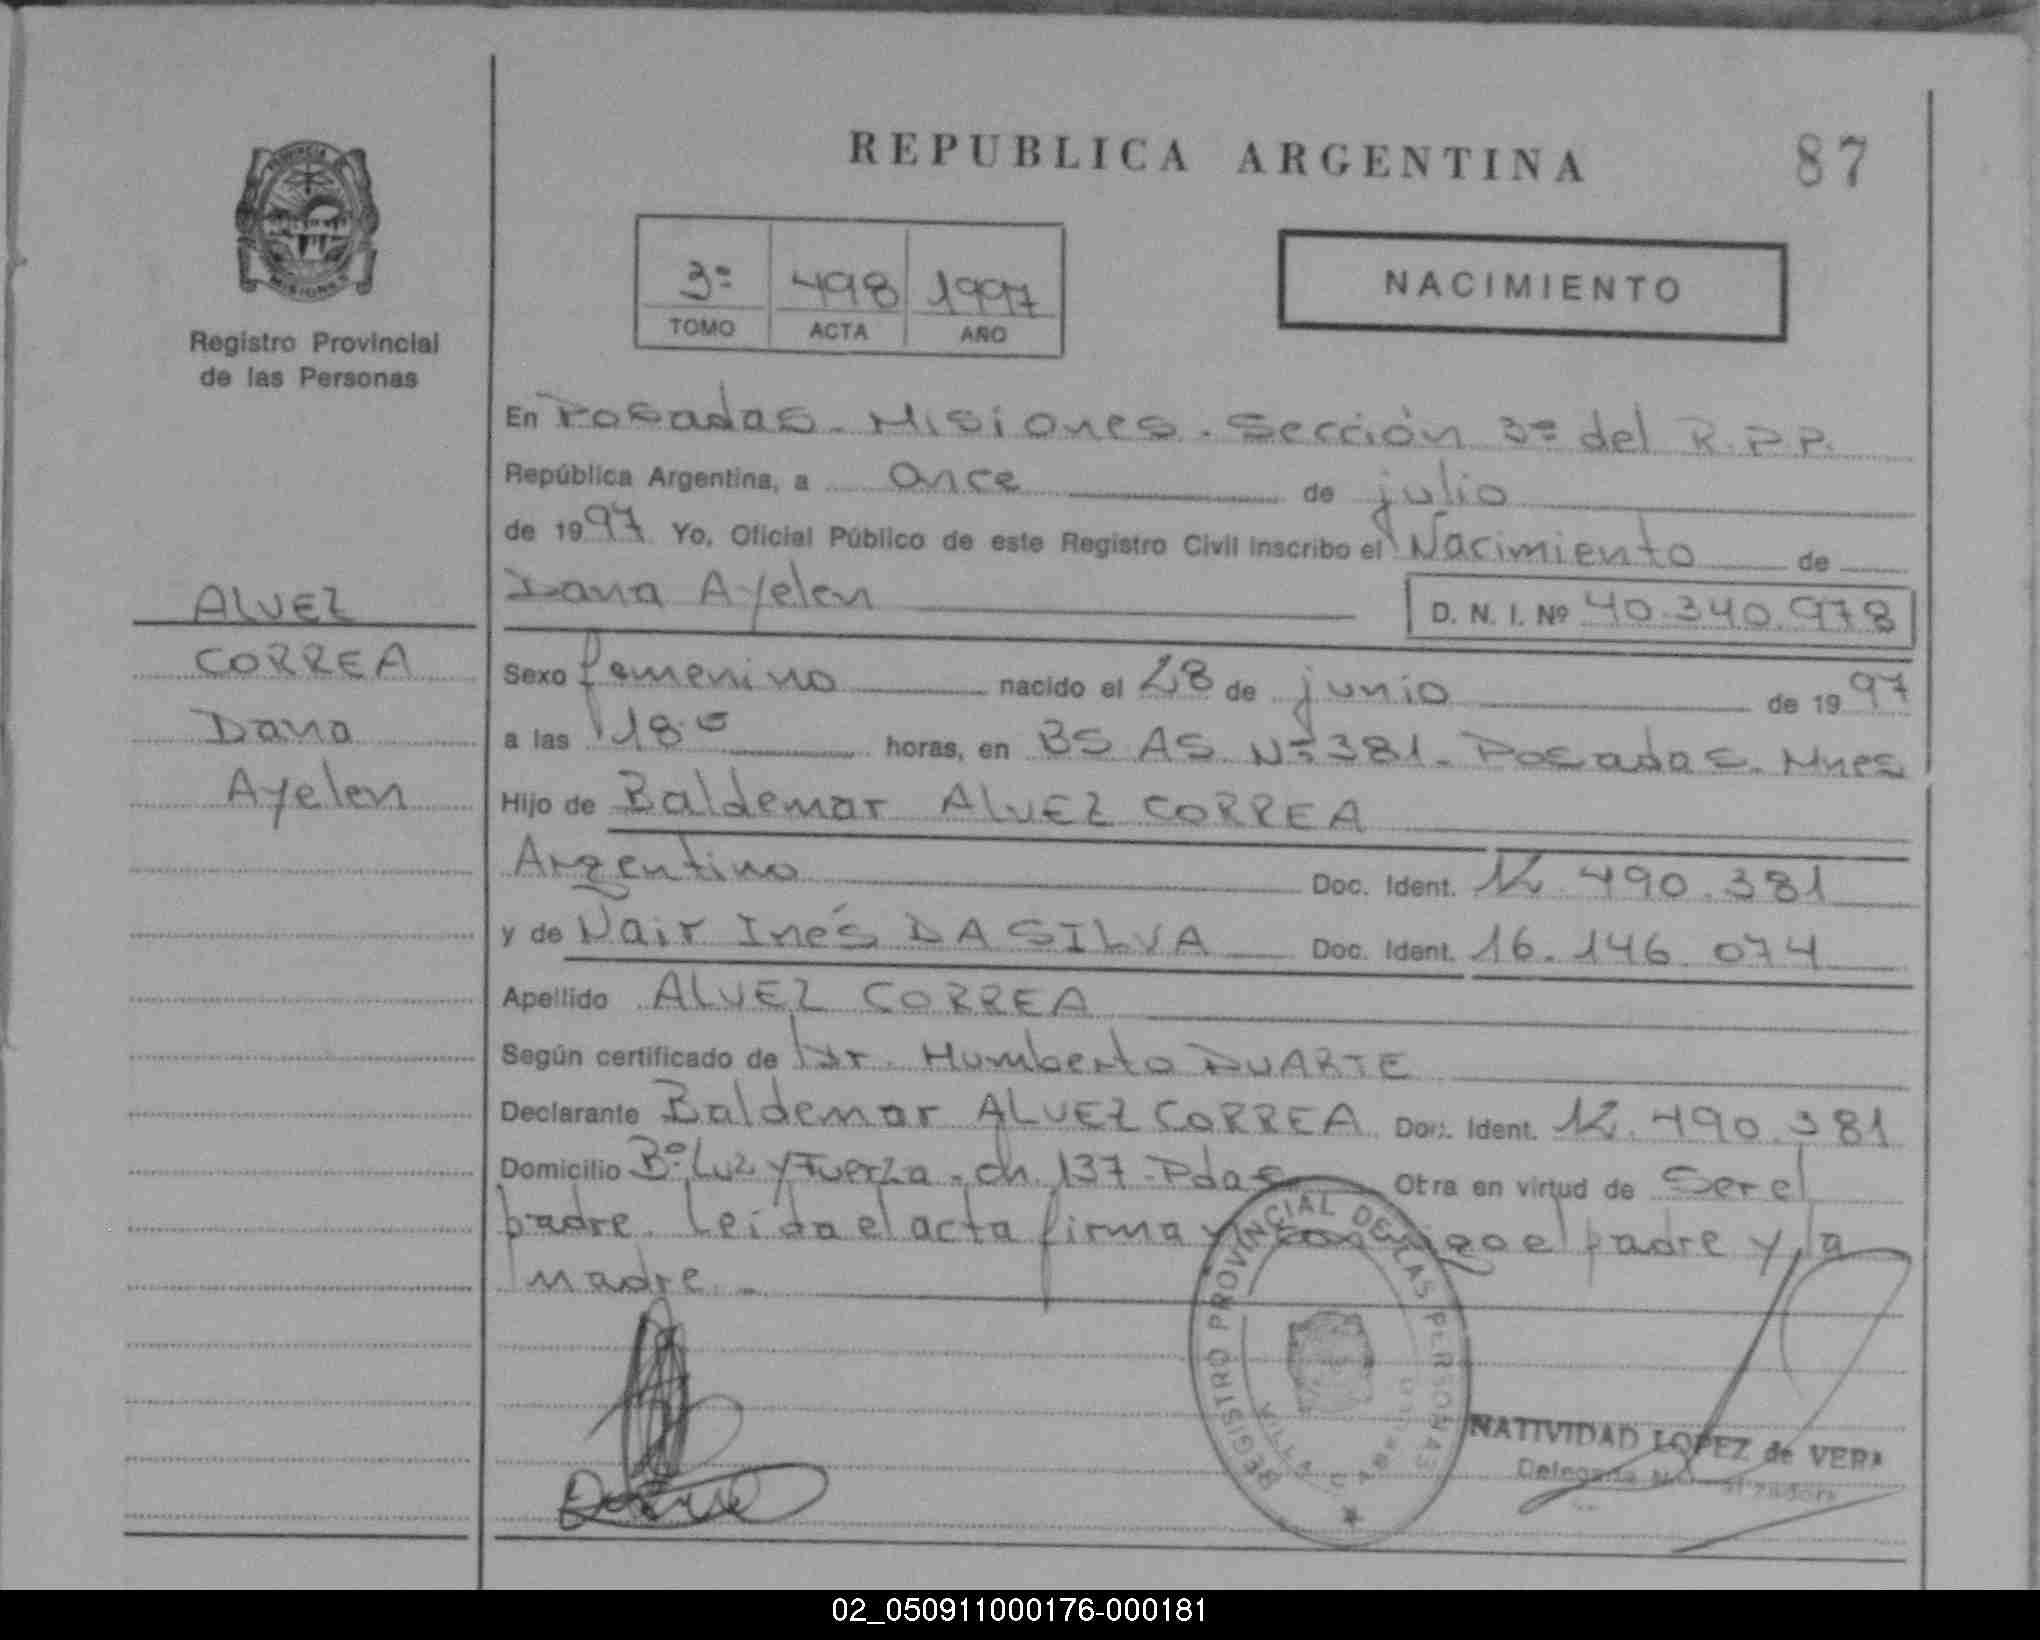 REPUBLICA ARGENTINA
87
PROVINCIA
MISIONES
Registro Provincial
de las Personas
3º 498 1997
TOMO ACTA AÑO
NACIMIENTO
En Posadas - Misiones - Sección 3º del R.P.P.
República Argentina, a once de julio
de 1997 Yo, Oficial Público de este Registro Civil inscribo el Nacimiento de
Dana Ayelen
D. N. I. Nº 40.340.978
ALVEZ
CORREA
Dana
Ayelen
Sexo femenino nacido el 28 de junio de 1997
a las 18.0 horas, en BS AS Nº 381 - Posadas - Mnes
Hijo de Baldemar ALVEZ CORREA
Argentino Doc. Ident. 12.490.381
y de Nair Inés DA SILVA Doc. Ident. 16.146.074
Apellido ALVEZ CORREA
Según certificado de Dr. Humberto DUARTE
Declarante Baldemar ALVEZ CORREA Doc. Ident. 12.490.381
Domicilio Bº Luz y Fuerza - ch. 137 - Pdas Otra en virtud de ser el
padre. Leída el acta firma conmigo el padre y la
madre. -
REGISTRO PROVINCIAL DE LAS PERSONAS
NATIVIDAD LOPEZ de VERA
Delegada
02_050911000176-000181